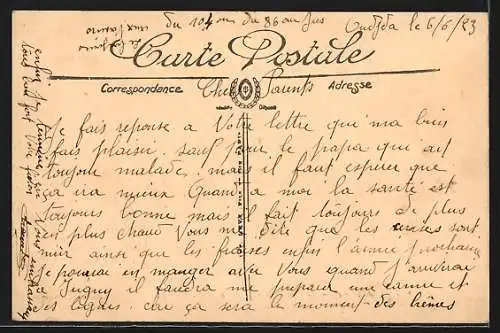 du 104 ou du 86 au jus Oudjda le 6/6/23
Carte Postale
Correspondance Adresse
Chers Parents
Je fais reponse a Votre lettre qui ma bien
fais plaisir sauf pour le papa que est
toujour malade mais il faut esperer que
ça ira mieux Quand a moi la santé est
toujours bonne mais il fait toujours de plus
en plus chaud Vous me dite que les cerises sont
mur ainsi que les fraises enfin l'année prochaine
je pourrai en manger avec Vous quand j'arriverai
a Jugny il faudra me preparer une canne et
des lignes car ça sera le moment des brêmes
enfin je termine en Vous embrassant
tous bien fort Votre